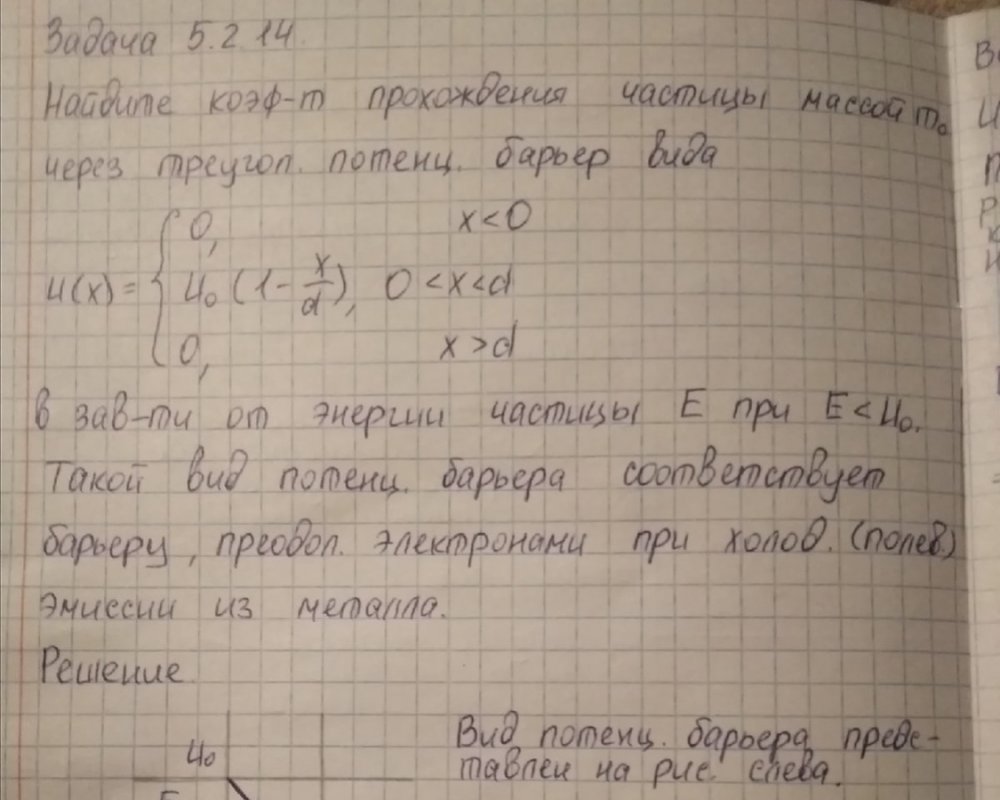 Задача 5.2.14.
Найдите коэф-т прохождения частицы массой m₀
через треугол. потенц. барьер вида
0, x<0
U(x)= U₀ (1- x/d), 0<x<d
0, x>d
в зав-ти от энергии частицы E при E<U₀.
Такой вид потенц. барьера соответствует
барьеру, преодол. электронами при холод. (полев.)
эмиссии из металла.
Решение
U₀
Вид потенц. барьера предс-
тавлен на рис. слева.